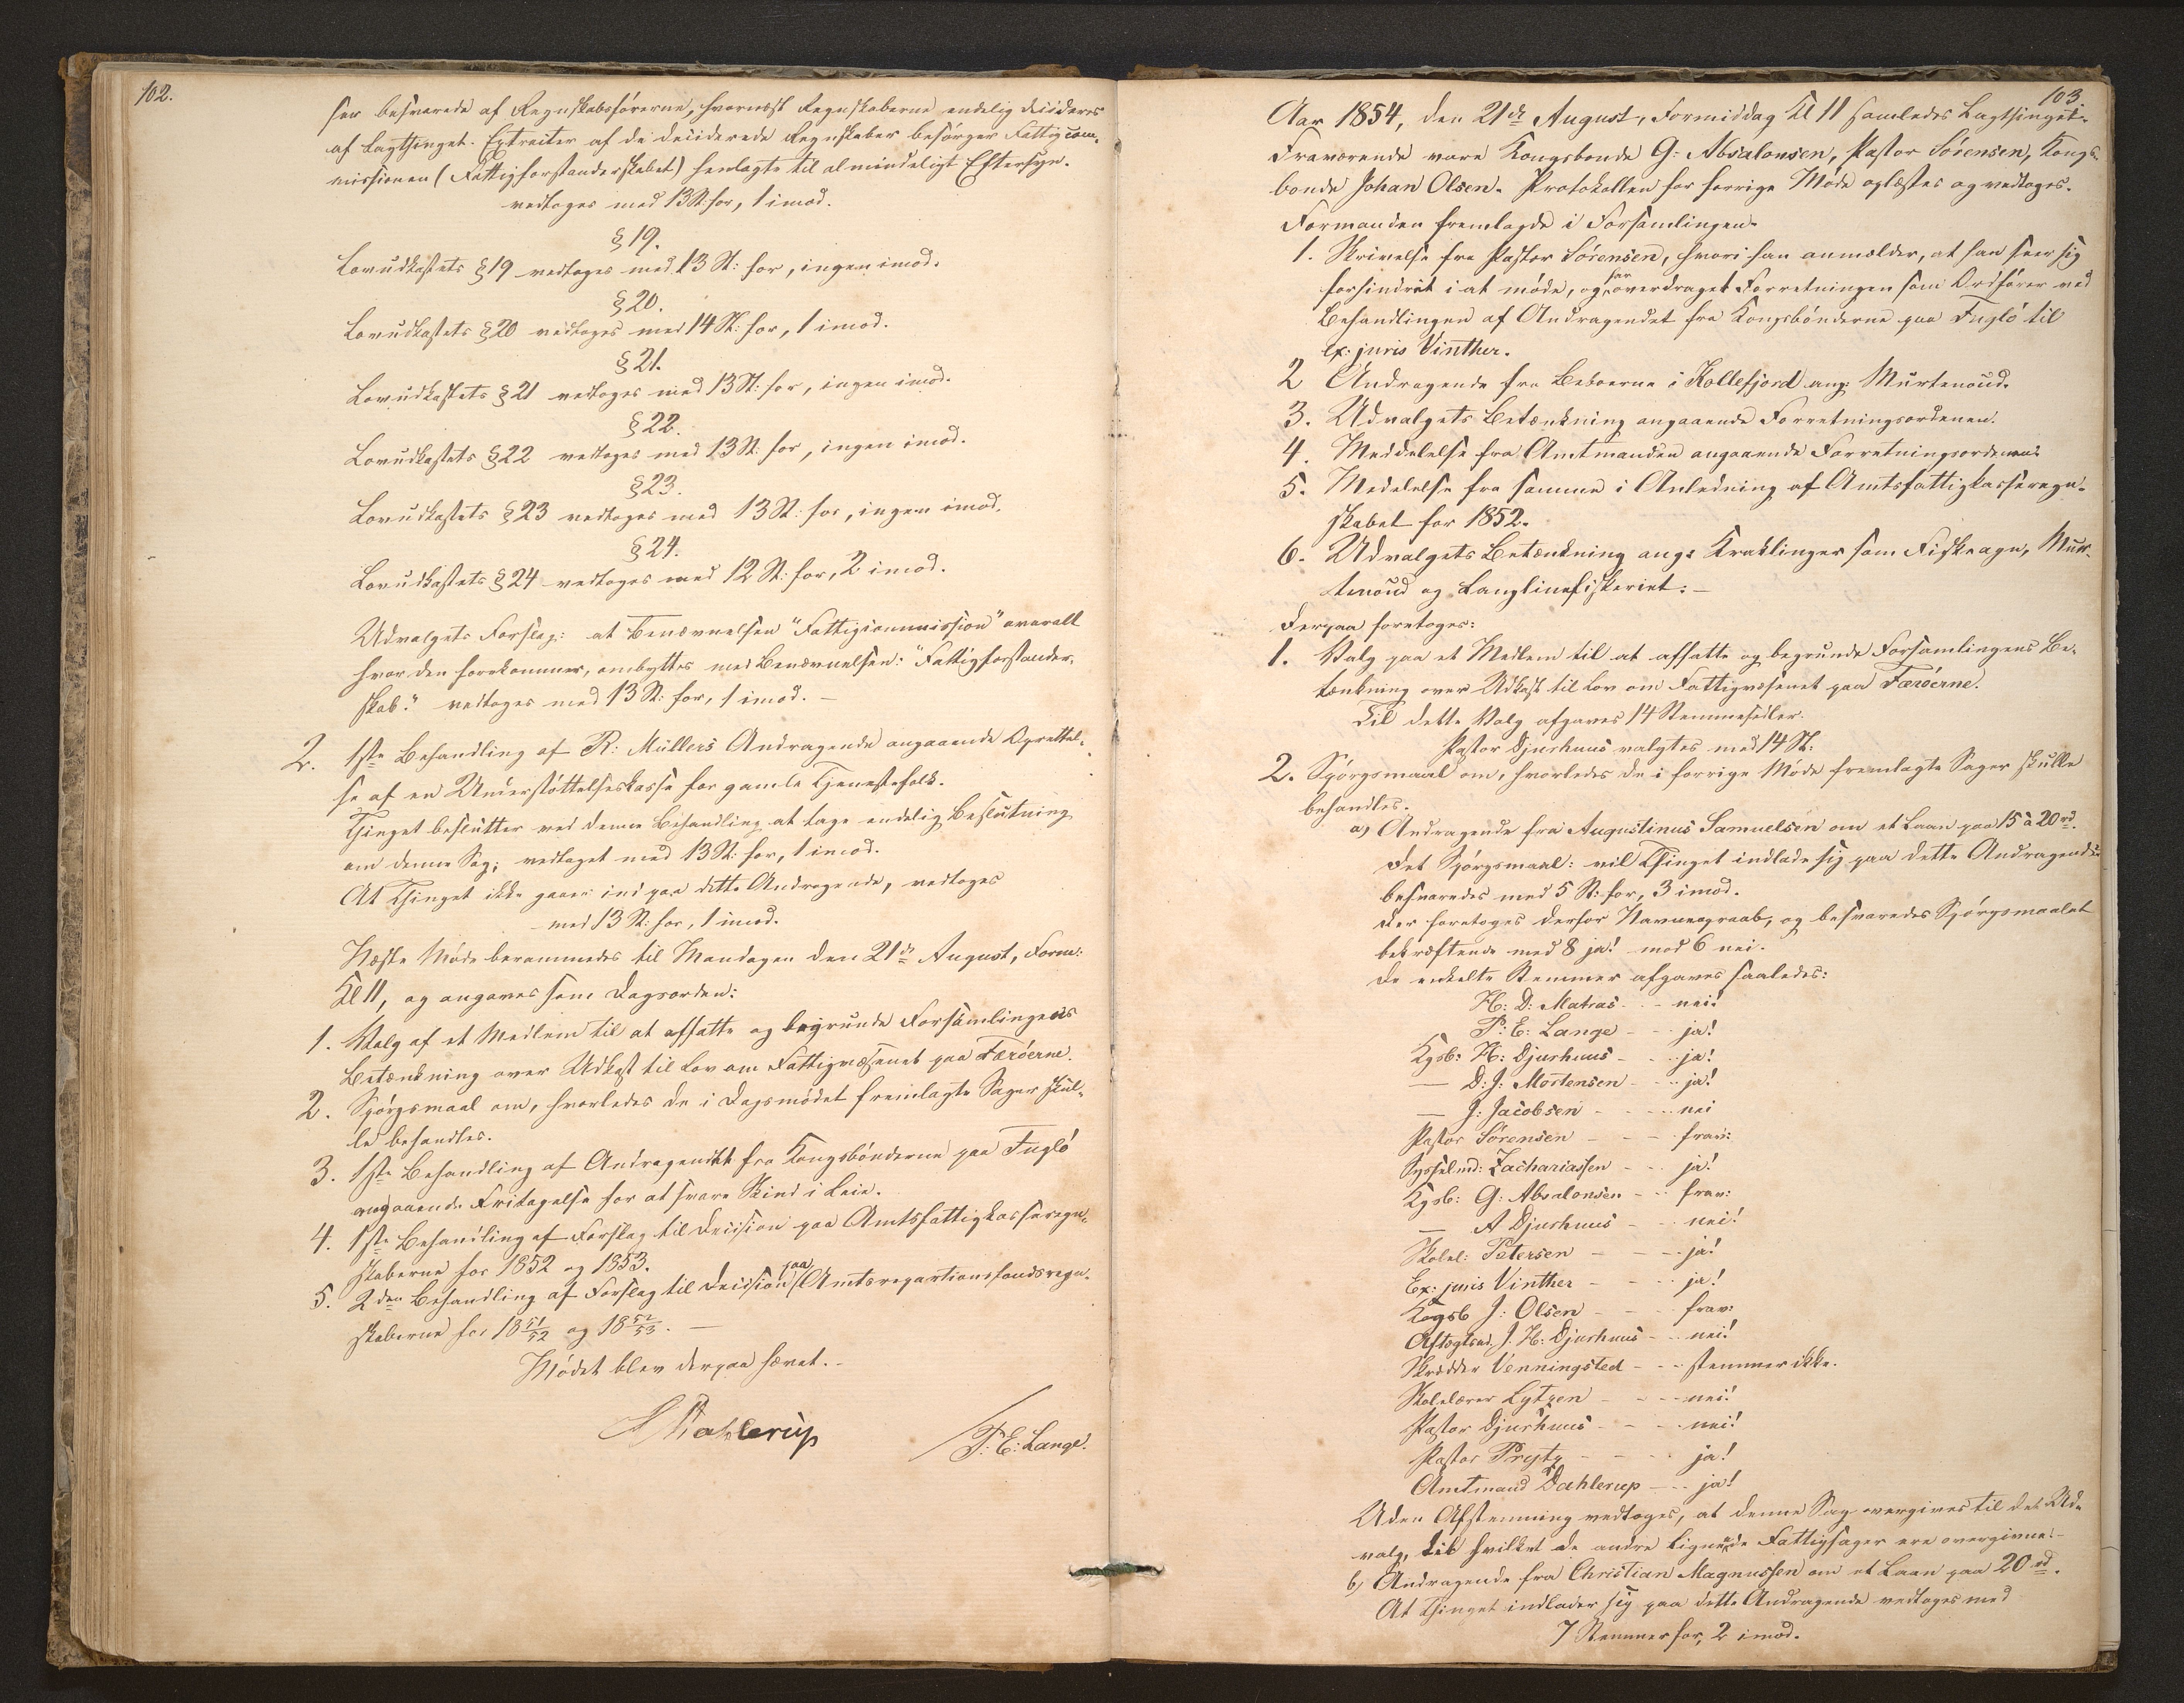 102.
ser besvarede af Regnskabsførerne, hvornæst Regnskaberne endelig decideres
af Lagthinget. Extracter af de deciderede Regnskaber besørger Fattigcom-
missionen (Fattigforstanderskabet) henlagte til almindeligt Eftersyn.
vedtoges med 13 St: for, 1 imod.
§ 19.
Lovudkastets § 19 vedtoges med 13 St: for, ingen imod.
§ 20.
Lovudkastets § 20 vedtoges med 14 St: for, 1 imod.
§ 21.
Lovudkastets § 21 vedtoges med 13 St: for, ingen imod.
§ 22.
Lovudkastets § 22 vedtoges med 13 St: for, ingen imod.
§ 23.
Lovudkastets § 23 vedtoges med 13 St: for, ingen imod.
§ 24.
Lovudkastets § 24 vedtoges med 12 St: for, 2 imod.
Udvalgets Forslag: at Benævnelsen "Fattigcommission" overalt
hvor den forekommer, ombyttes med Benævnelsen: "Fattigforstander-
skab." vedtoges med 13 St: for, 1 imod. —
2. 1ste Behandling af R: Müllers Andragende angaaende Oprettel-
se af en Understøttelseskasse for gamle Tjenestefolk.
Thinget beslutter ved denne Behandling at tage endelig Beslutning
om denne Sag; vedtaget med 13 St: for, 1 imod.
At Thinget ikke gaaer ind paa dette Andragende, vedtoges
med 13 St: for, 1 imod.
Næste Møde berammedes til Mandagen den 21de August, Form:
Kl 11, og angaves som Dagsorden:
1. Valg af et Medlem til at affatte og begrunde Forsamlingens
Betænkning over Udkast til Lov om Fattigvæsenet paa Færøerne.
2. Spørgsmaal om, hvorledes de i Dagsmødet fremlagte Sager skul-
le behandles.
3. 1ste Behandling af Andragendet fra Kongsbønderne paa Fuglø
angaaende Fritagelse for at svare Skind i Leie.
4. 1ste Behandling af Forslag til Decision paa Amtsfattigkasseregn-
skaberne for 1852 og 1853.
5. 2den Behandling af Forslag til Decision paa Amtsrepartionsfondsregn-
skaberne for 18 51/52 og 18 52/53. —
Mødet blev derpaa hævet. -
Dahlerup
P: E: Lange.
103
Aar 1854, den 21de August, Formiddag Kl 11 samledes Lagthinget.
Fraværende vare Kongsbonde G: Absalonsen, Pastor Sørensen, Kongs-
bonde Johan Olsen. Protokollen for forrige Møde oplæstes og vedtoges.
Formanden fremlagde i Forsamlingen
1. Skrivelse fra Pastor Sørensen, hvori han anmelder, at han seer sig
forhindret i at møde, og har overdraget Forretningen som Ordfører ved
Behandlingen af Andragendet fra Kongsbønderne paa Fuglø til
ex: juris Vinther.
2 Andragende fra Beboerne i Kollefjord ang: Murtenoud.
3. Udvalgets Betænkning angaaende Forretningsordenen.
4. Meddelelse fra Amtmanden angaaende Forretningsordenen.
5. Medelelse fra samme i Anledning af Amtsfattigkasseregn-
skabet for 1852.
6. Udvalgets Betænkning ang: Kraklinger som Fiskeagn, Mur-
tenoud og Langlinefiskeriet: —
Derpaa foretoges:
1. Valg paa et Medlem til at affatte og begrunde Forsamlingens Be-
tænkning over Udkast til Lov om Fattigvæsenet paa Færøerne.
Til dette Valg afgaves 14 Stemmesedler.
Pastor Djurhuus valgtes med 14 St:
2. Spørgsmaal om, hvorledes de i forrige Møde fremlagte Sager skulle
behandles.
a) Andragende fra Augustinus Samuelsen om et Laan paa 15 à 20 rd.
Det Spørgsmaal: vil Thinget indlade sig paa dette Andragende
besvaredes med 5 St: for, 3 imod.
Der foretoges derfor Navneopraab, og besvaredes Spørgsmaalet
bekræftende med 8 ja! mod 6 nei.
De enkelte Stemmer afgaves saaledes:
H: D: Matras - - nei!
P: E: Lange - - ja!
Kgsb: H: Djurhuus - - ja!
— D: J: Mortensen - - ja!
— J: Jacobsen - - nei
Pastor Sørensen - - frav:
Sysselmd: Zachariassen - - ja!
Kgsb: G: Absalonsen - - frav:
— A Djurhuus - - nei!
Skolel: Petersen - - ja!
Ex: juris Vinther - - ja!
Kogsb J: Olsen - - frav:
Aftægtsmd. J. H: Djurhuus - - nei!
Skrædder Venningsted - - stemmer ikke.
Skolelærer Lytzen - - nei!
Pastor Djurhuus - - nei!
Pastor Prytz - - ja!
Amtmand Dahlerup - - ja!
Uden Afstemning vedtoges, at denne Sag overgives til det Ud-
valg, til hvilket de andre lignende Fattigsager ere overgivne. -
b) Andragende fra Christian Magnussen om et Laan paa 20 rd.
At Thinget indlader sig paa dette Andragende vedtoges med
7 Stemmer for, 2 imod.